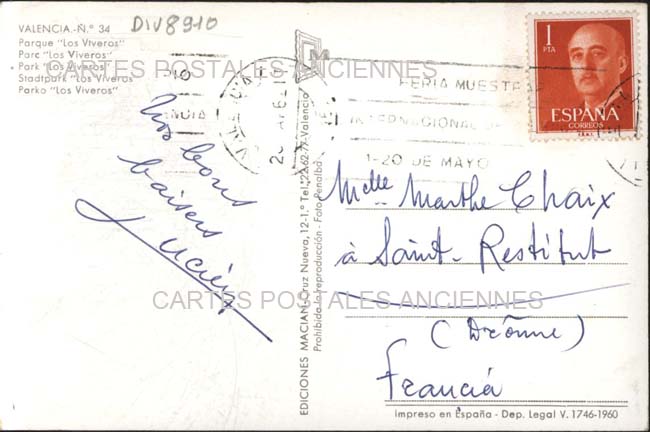 VALENCIA.-Ñ.° 34
DIV8910
Parque "Los Viveros"
Parc "Los Viveros"
Park "Los Viveros"
Stadtpark "Los Viveros"
Parko "Los Viveros"
CARTES POSTALES ANCIENNES
bons
baisers
Lucien
EDICIONES MACIAN - Cruz Nueva, 12-1.° Tel. 22-62-77-Valencia
Prohibida la reproducción - Foto Penalba
1
PTA
ESPAÑA
CORREOS
FERIA MUESTRARIO
INTERNACIONAL DE
1-20 DE MAYO
Melle Marthe Chaix
à Saint-Restitut
(Drôme)
Francia
CARTES POSTALES ANCIENNES
Impreso en España - Dep. Legal V. 1746-1960